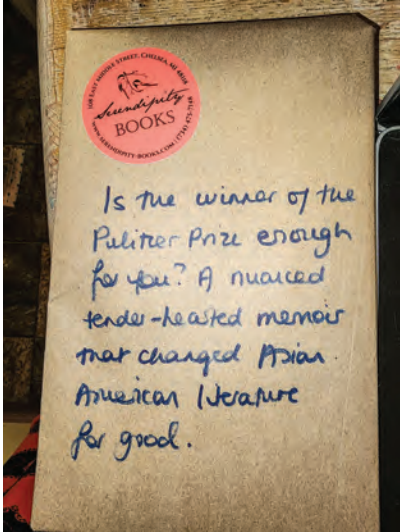 108 EAST MIDDLE STREET, CHELSEA, MI 48118
Serendipity
BOOKS
WWW.SERENDIPITY-BOOKS.COM / (734) 475-7148
Is the winner of the
Pulitzer Prize enough
for you? A nuanced
tender-hearted memoir
that changed Asian
American literature
for good.